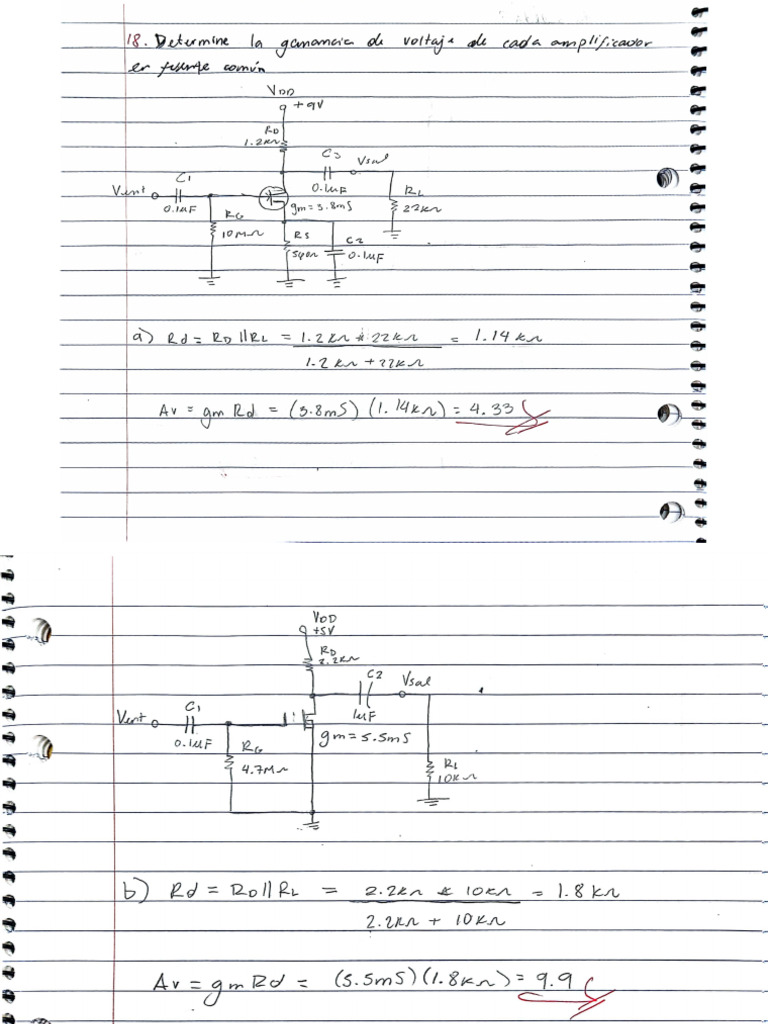 18. Determine la ganancia de voltaje de cada amplificador
en fuente común
VDD
+9V
RD
1.2KΩ
C3
Vsal
C1
Vent
0.1µF
0.1µF
RL
22KΩ
gm=3.8mS
RG
10MΩ
RS
C2
0.1µF
a) Rd = RD||RL = 1.2KΩ * 22KΩ = 1.14KΩ
1.2KΩ + 22KΩ
Av = gm Rd = (3.8mS) (1.14KΩ) = 4.33
VDD
+5V
RD
2.2KΩ
C2
Vsal
C1
Vent
1µF
0.1µF
gm=5.5mS
RG
4.7MΩ
RL
10KΩ
b) Rd = RD||RL = 2.2KΩ * 10KΩ = 1.8KΩ
2.2KΩ + 10KΩ
Av = gm Rd = (5.5mS)(1.8KΩ) = 9.9